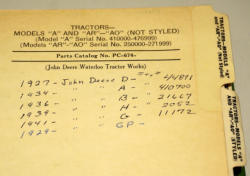 TRACTORS—
MODELS "A" AND "AR"—"AO" (NOT STYLED)
(Model "A" Serial No. 410000-476999)
(Models "AR"-"AO" Serial No. 250000-271999)
Parts Catalog No. PC-674-
(John Deere Waterloo Tractor Works)
1927 - John Deere D -
1934 - " " A - 410700
1936 - " " B - 21667
1934 - " " H - 2052
1941 - " " G - 11172
1929 - GP -